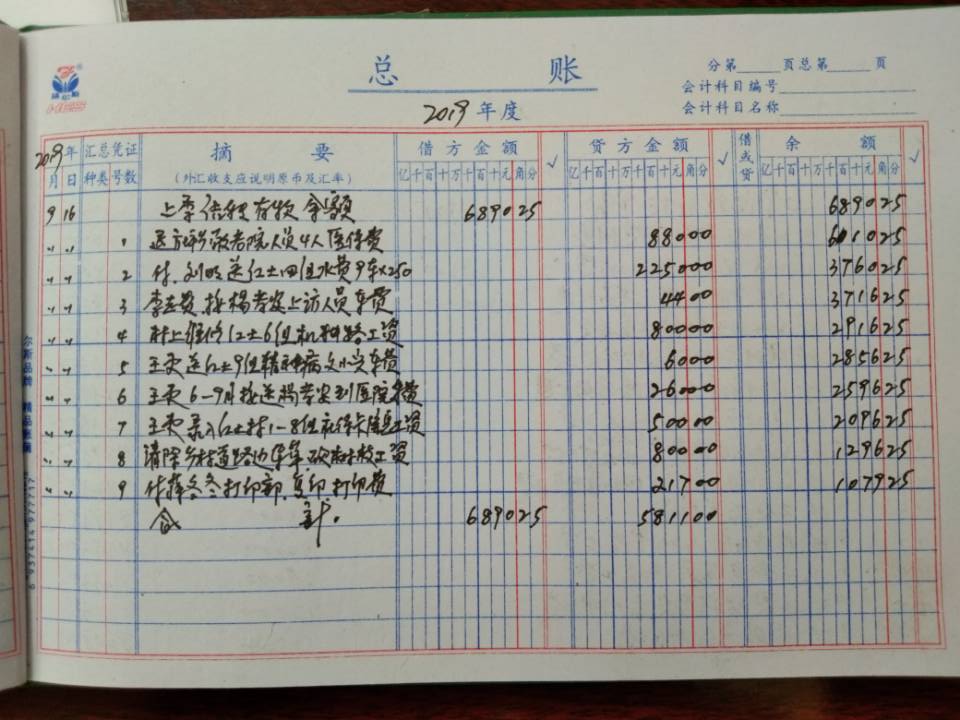 总 账
分第 页总第 页
会计科目编号
会计科目名称
2019 年度
2019年 汇总凭证 摘 要 借方金额 √ 贷方金额 √ 借或贷 余 额 √
月 日 种类 号数 (外汇收支应说明原币及汇率) 亿千百十万千百十元角分 亿千百十万千百十元角分 亿千百十万千百十元角分
9 16 上季结 存 余额 689025 689025
〃 〃 1 送 敬老院人员4人医保费 88000 601025
〃 〃 2 付 刘 送红土四组水费9车×250 225000 376025
〃 〃 3 李 接杨孝安上访人员车费 4400 371625
〃 〃 4 村上维修红土6组机耕路工资 80000 291625
〃 〃 5 王 送红土9组精神病 车费 6000 285625
〃 〃 6 王 6-9月接送杨孝安到医院车费 26000 259625
〃 〃 7 王 录入红土村1-8组 保卡信息工资 50000 209625
〃 〃 8 清除乡村道路边杂草 工资 80000 129625
〃 〃 9 付 冬冬打印部复印打印费 21700 107925
合 计. 689025 581100